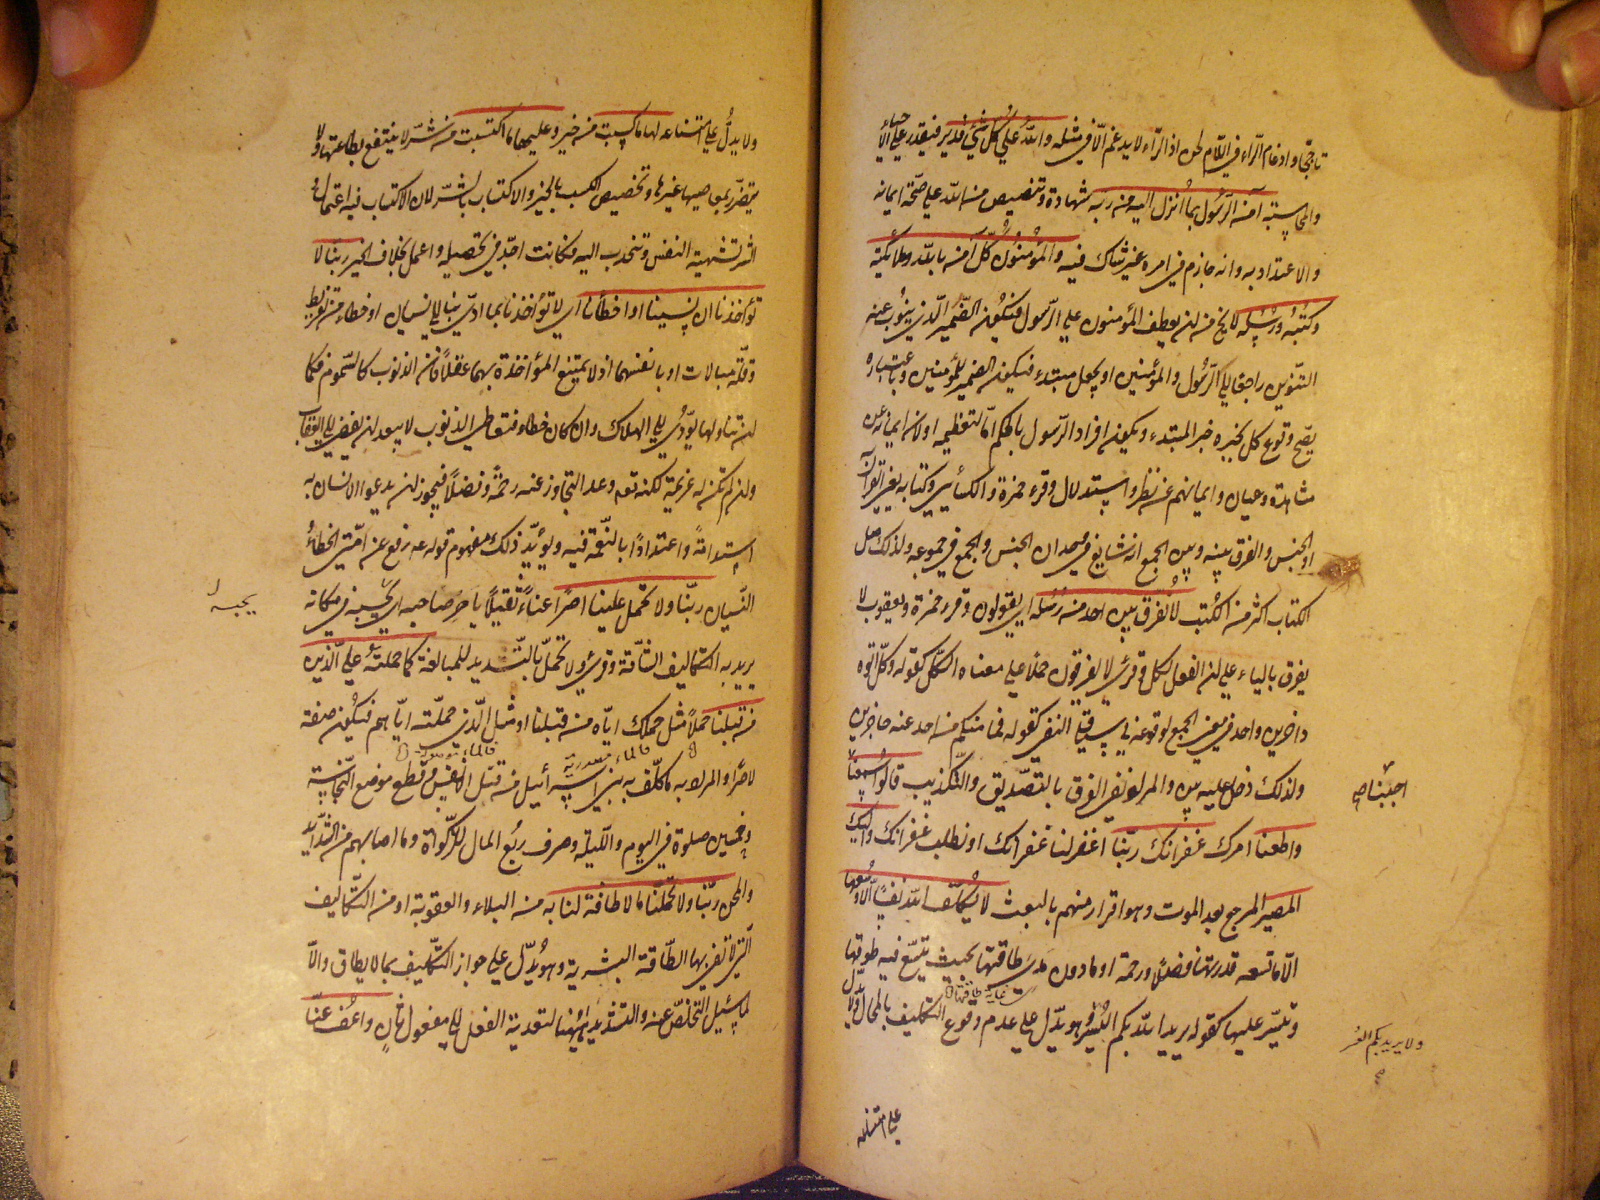 تاجي وادغام الراء في اللام لحن اذ الراء لا يدغم الا في مثله والله على كل شئ قدير فيقدر على الاحياء
والمحاسبة آمن الرسول بما انزل اليه من ربه شهادة وتنصيص من الله على صحة ايمانه
والاعتداد به وانه جازم في امره غير شاك فيه والمؤمنون كل آمن بالله وملائكته
وكتبه ورسله لا يخ من ان يعطف المؤمنون على الرسول فيكون الضمير الذي ينوب عنه
التنوين راجعا الى الرسول والمؤمنين او يجعل مبتدء فيكون الضمير للمؤمنين وباعتباره
يصح وقوع كل بخبره خبر المبتدء ويكون افراد الرسول بالحكم اما لتعظيمه او لان ايمانه عن
مشاهدة وعيان وايمانهم عن نظر واستدلال وقرء حمزة والكسائي وكتابه يعني القرآن
او الجنس والفرق بينه وبين الجمع انه شايع في وحدان الجنس والجمع في جموعه ولذلك قيل
الكتاب اكثر من الكتب لا نفرق بين احد من رسله اي يقولون وقرء حمزة ويعقوب لا
يفرق بالياء على ان الفعل لكل وقرئ لا يفرقون حملا على معناه الكل كقوله وكل اتوه
داخرين واحد في معنى الجمع لوقوعه في سياق النفي كقوله فما منكم من احد عنه حاجزين
ولذلك دخل عليه بين والمراد نفي الفرق بالتصديق والتكذيب قالوا سمعنا
اجبنا صح
واطعنا امرك غفرانك ربنا اغفر لنا غفرانك او نطلب غفرانك واليك
المصير المرجع بعد الموت وهو اقرار منهم بالبعث لا يكلف الله نفسا الا وسعها
الا ما تسعه قدرتها فضلا ورحمة او ما دون مدى طاقتها بحيث يتسع فيه طوقها
غاية طاقتها
وتيسر عليها كقوله يريد الله بكم اليسر وهو يدل على عدم وقوع التكليف بالمحال ولا يدل
ولا يريد بكم العسر
صح
على امتناعه
ولا يدل على امتناعه لها ما كسبت من خير وعليها ما اكتسبت من شر لا ينتفع بطاعتها ولا
يتضرر بمعاصيها غيرها وتخصيص الكسب بالخير والاكتساب بالشر لان الاكتساب فيه اعتمال
الشر تشتهيه النفس وتنجذب اليه فكانت اجد في تحصيله واعمل بخلاف الخير ربنا لا
تؤاخذنا ان نسينا او اخطأنا اي لا تؤاخذنا بما ادى بنا الى نسيان او خطاء من تفريط
وقلة مبالات او بانفسهما اذ لا يمتنع المؤاخذة بهما عقلا فان الذنوب كالسموم فكما
ان تناولها يؤدي الى الهلاك وان كان خطاء فتعاطي الذنوب لا يبعد ان يفضي الى العقاب
وان لم تكن له عزيمة لكنه تعه وعد التجاوز عنه رحمة وفضلا فيجوز ان يدعو الانسان به
استدامة واعتدادا بالنعمة فيه ويؤيد ذلك مفهوم قوله عه رفع عن امتي الخطاء
النسيان ربنا ولا تحمل علينا اصرا عناء ثقيلا ياصر صاحبه اي يحبسه في مكانه
يحبسه
يريد به التكاليف الشاقة وقرئ ولا تحمل بالتشديد للمبالغة كما حملته على الذين
من قبلنا حملا مثل حملك اياه من قبلنا او مثل الذي حملته اياهم فيكون صفة
لاصرا والمراد به ما كلف به بني اسرائيل من قتل الانفس وقطع موضع النجاسة
وخمسين صلوة في اليوم والليلة وصرف ربع المال للزكوة وما اصابهم من الشدايد
والمحن ربنا ولا تحملنا ما لا طاقة لنا به من البلاء والعقوبة او من التكاليف
التي لا تفي بها الطاقة البشرية وهو يدل على جواز التكليف بما لا يطاق والا
لما سئل التخلص عنه والتشديد ههنا لتعدية الفعل الى مفعول ثان واعف عنا